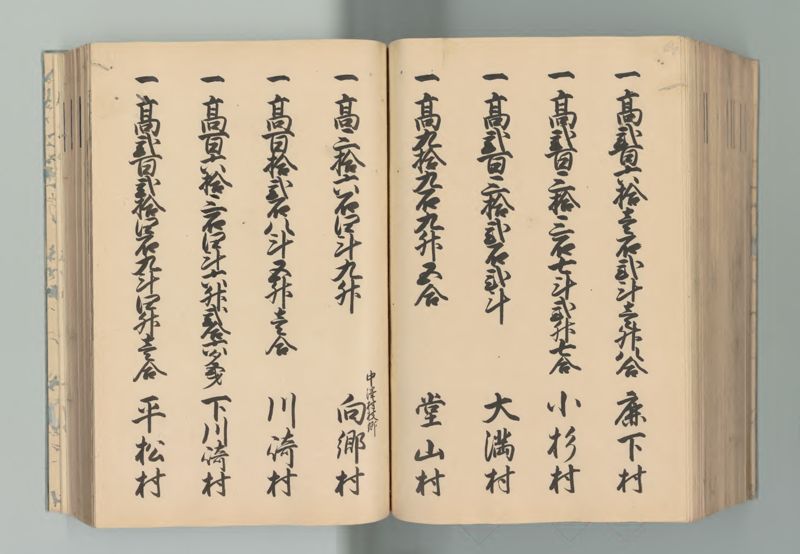 一高弐百六拾壱石弐斗壱升八合 廉下村
一高弐百三拾三石七斗弐升七合 小杉村
一高弐百三拾弐石弐斗 大満村
一高九拾九石九升五合 堂山村
一高三拾六石四斗九升 中澤村枝郷 向郷村
一高百拾弐石八斗五升壱合 川崎村
一高百六拾三石四斗六升弐合 下川崎村
一高弐百弐拾四石九斗四升壱合 平松村